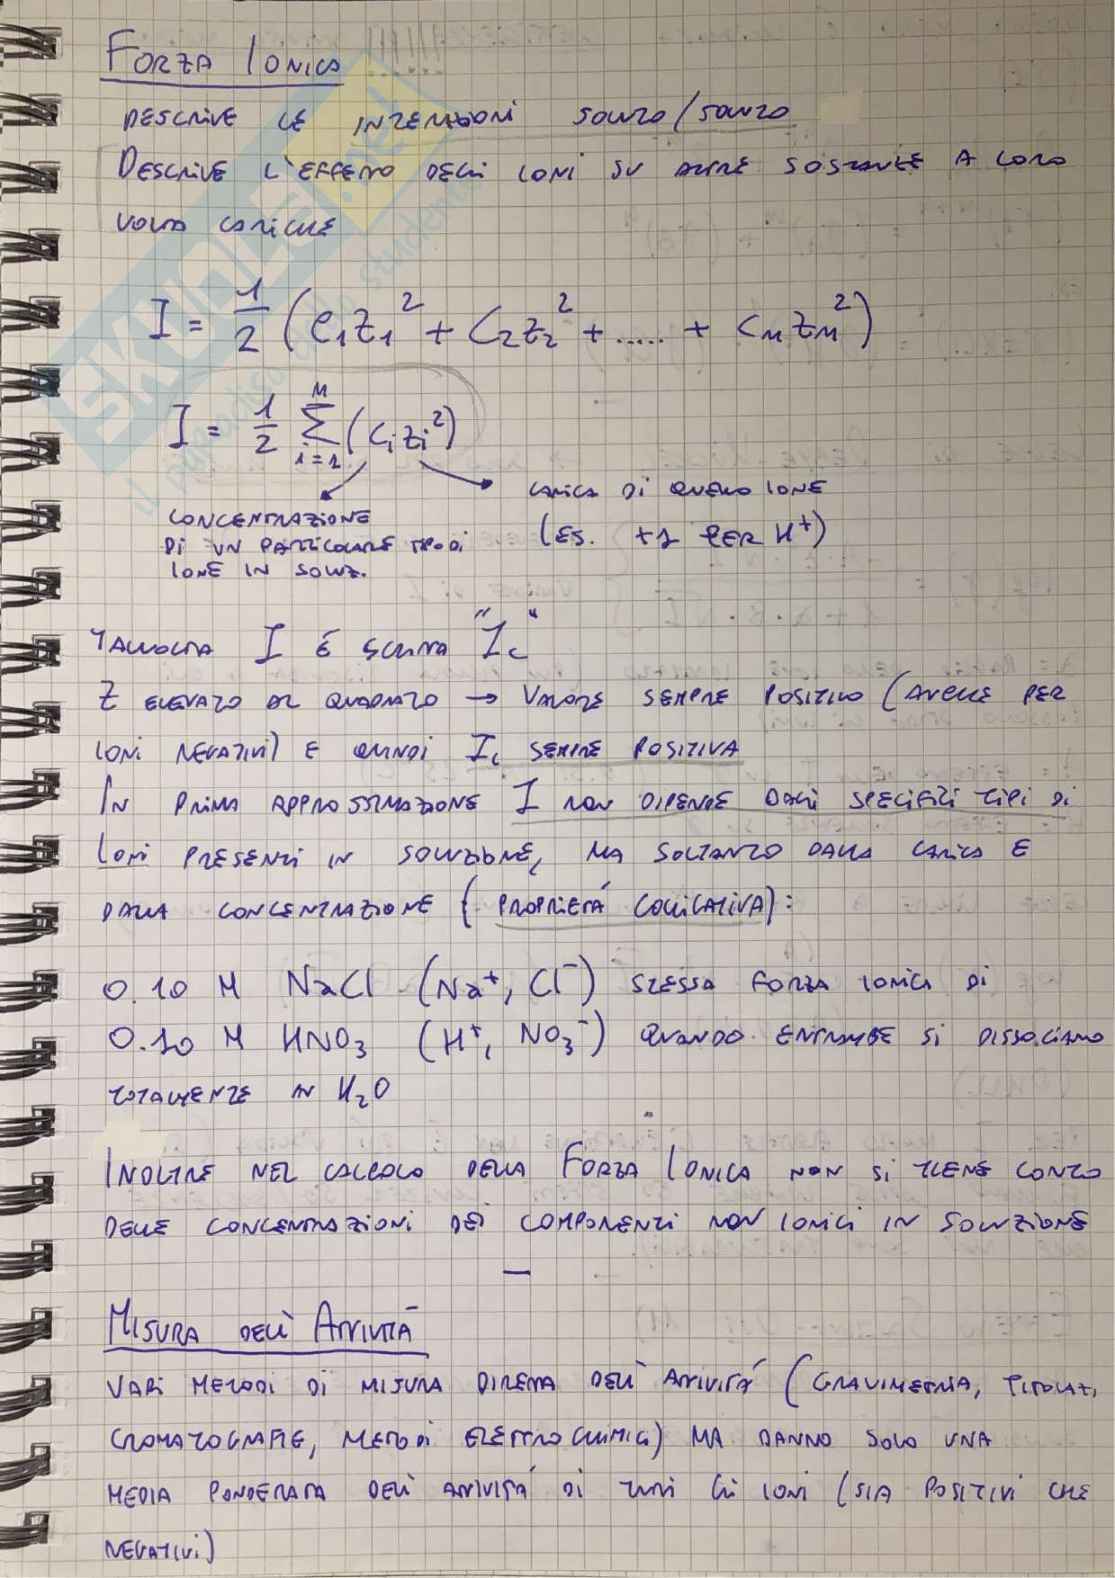 FORZA IONICA
DESCRIVE LE INTERAZIONI SOLUTO/SOLUTO
DESCRIVE L'EFFETTO DEGLI IONI SU ALTRE SOSTANZE A LORO
VOLTA CARICHE
I = 1/2 (C₁Z₁² + C₂Z₂² + ..... + CₙZₙ²)
I = 1/2 Σ_{i=1}^{n} (CᵢZᵢ²)
CARICA DI QUELLO IONE
(ES. +1 PER H⁺)
CONCENTRAZIONE
DI UN PARTICOLARE TIPO DI
IONE IN SOLUZ.
TALVOLTA I É SCRITTA "I_C"
Z ELEVATO AL QUADRATO → VALORE SEMPRE POSITIVO (ANCHE PER
IONI NEGATIVI) E QUINDI I_C SEMPRE POSITIVA
IN PRIMA APPROSSIMAZIONE I NON DIPENDE DAGLI SPECIFICI TIPI DI
IONI PRESENTI IN SOLUZIONE, MA SOLTANTO DALLA CARICA E
DALLA CONCENTRAZIONE (PROPRIETÁ COLLIGATIVA):
0.10 M NaCl (Na⁺, Cl⁻) STESSA FORZA IONICA DI
0.10 M HNO₃ (H⁺, NO₃⁻) QUANDO ENTRAMBE SI DISSOCIANO
TOTALMENTE IN H₂O
INOLTRE NEL CALCOLO DELLA FORZA IONICA NON SI TIENE CONTO
DELLE CONCENTRAZIONI DEI COMPONENTI NON IONICI IN SOLUZIONE
—
MISURA DELL'ATTIVITÁ
VARI METODI DI MISURA DIRETTA DELL'ATTIVITÁ (GRAVIMETRIA, TITOLAZ,
CROMATOGRAFIE, METODI ELETTROCHIMICI) MA DANNO SOLO UNA
MEDIA PONDERATA DELL'ATTIVITÁ DI TUTTI GLI IONI (SIA POSITIVI CHE
NEGATIVI)
SKUOLA.NET